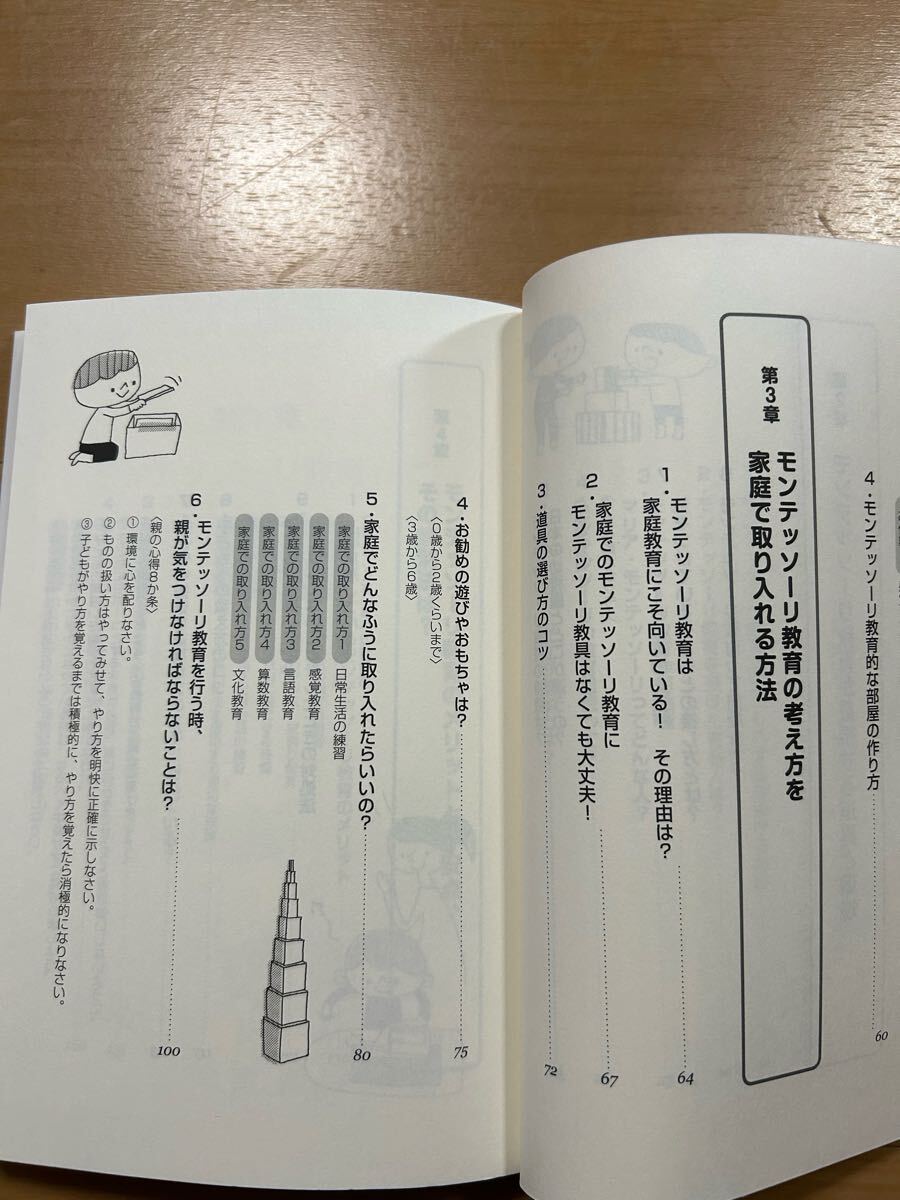 4・モンテッソーリ教育的な部屋の作り方
60
第3章
モンテッソーリ教育の考え方を
家庭で取り入れる方法
1・モンテッソーリ教育は
家庭教育にこそ向いている! その理由は?
64
2・家庭でのモンテッソーリ教育に
モンテッソーリ教具はなくても大丈夫!
67
3・道具の選び方のコツ
72
4・お勧めの遊びやおもちゃは?
75
〈0歳から2歳くらいまで〉
〈3歳から6歳〉
5・家庭でどんなふうに取り入れたらいいの?
80
家庭での取り入れ方1 日常生活の練習
家庭での取り入れ方2 感覚教育
家庭での取り入れ方3 言語教育
家庭での取り入れ方4 算数教育
家庭での取り入れ方5 文化教育
6・モンテッソーリ教育を行う時、
親が気をつけなければならないことは?
100
〈親の心得8か条〉
① 環境に心を配りなさい。
② ものの扱い方はやってみせて、やり方を明快に正確に示しなさい。
③ 子どもがやり方を覚えるまでは積極的に、やり方を覚えたら消極的になりなさい。